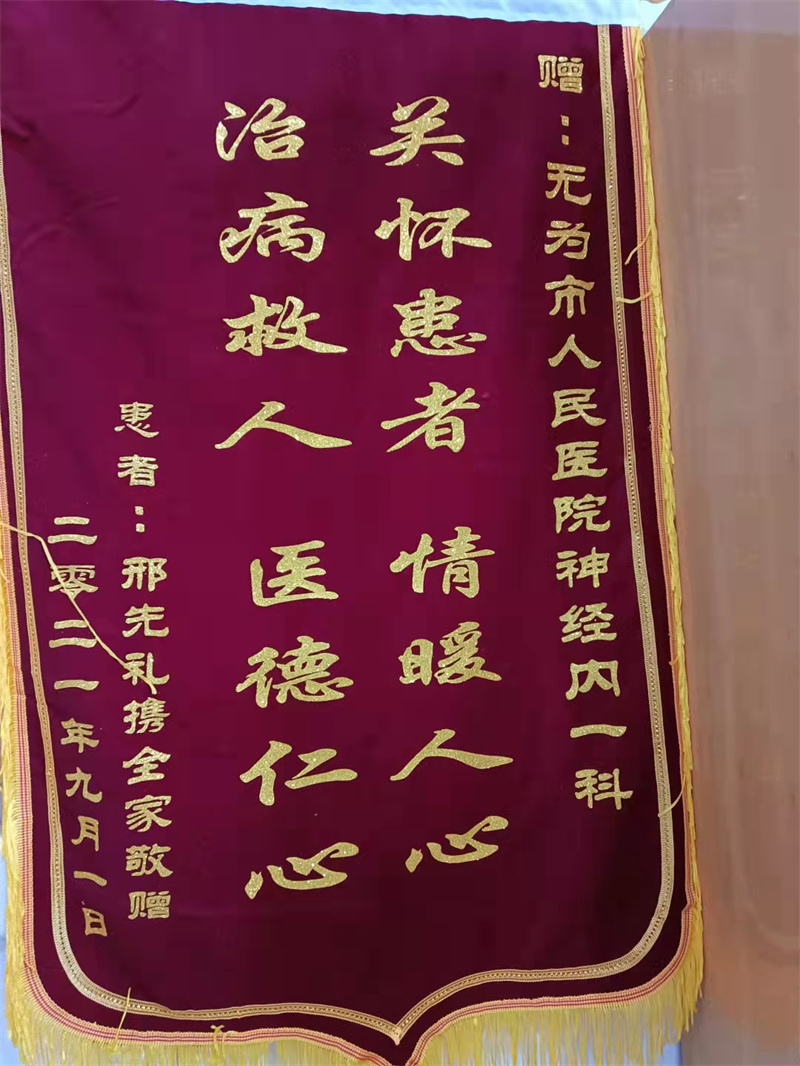 赠：无为市人民医院神经内一科
关怀患者 情暖人心
治病救人 医德仁心
患者：邢先礼携全家敬赠
二零二一年九月一日